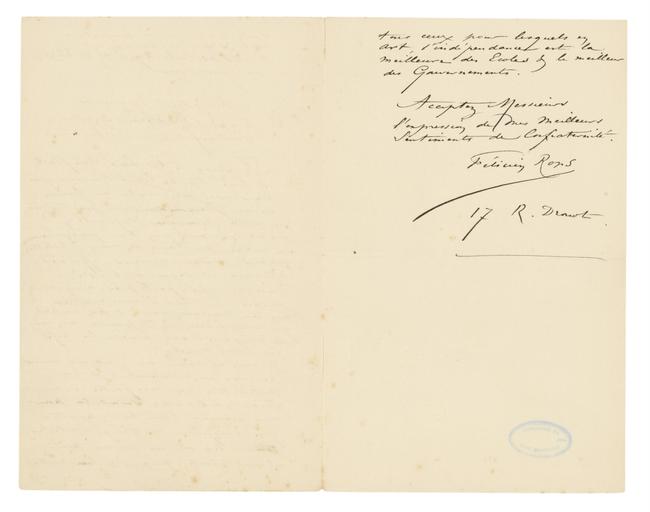 tous ceux pour lesquels en
art l'indépendance est la
meilleure des Ecoles & le meilleur
des Gouvernements.
Acceptez Messieurs
l'expression de mes meilleurs
Sentiments de Confraternité.
Félicien Rops
17 R. Drouot.